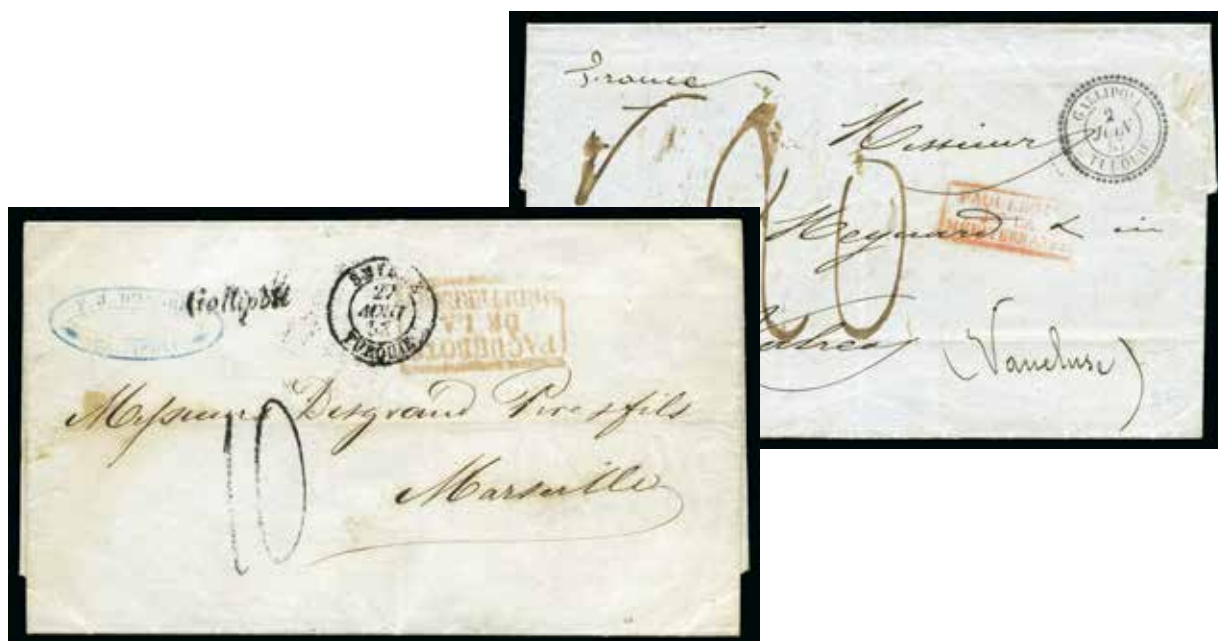 France
GALLIPOLI
2
JUIN
TURQUIE
Messieurs
PAQUEBOTS
DE LA
MEDITERRANEE
Meynard &
(Vaucluse)
Gallipoli
SMYRNE
27
AOUT
TURQUIE
PAQUEBOTS
DE LA
MEDITERRANEE
Messieurs Desgrand Pere & fils
10
Marseille